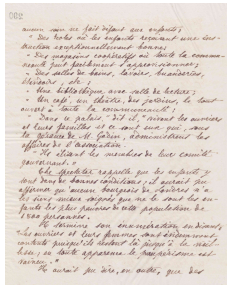 002
aucun soin ne fait défaut aux enfants;
" Des écoles où les enfants reçoivent une ins-
truction exceptionnellement bonne;
" Des magasins coopératifs où toute la commu-
nauté peut librement s'approvisionner;
" Des salles de bains, lavoirs, buanderies,
" Une bibliothèque avec salle de lecture;
" Un café, un théâtre, des jardins, le tout
ouvert à toute la communauté;
" Dans ce palais " dit-il, " vivent les ouvriers
et leurs familles et ce sont eux qui, sous
la gérance de M. Godin, administrent les
affaires de l'association.
" Ils élisent les membres de leur comité
The Spectator rappelle que les enfants
sont dans de bonnes conditions;
affirmer qu'aucun
les siens mieux soignés que ne le sont les en-
fants les plus pauvres de cette population de
1800 personnes.
Il termine son énumération en disant
" Les ouvriers et leurs femmes sont
contents puisqu'ils restent là jusqu'à la mort
bien, en toute apparence le paupérisme est
vaincu. "
Il aurait pu dire, en outre, que des